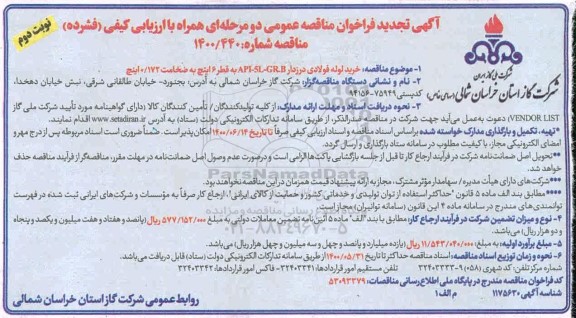 آگهی تجدید فراخوان مناقصه عمومی دو مرحله‌ای همراه با ارزیابی کیفی (فشرده)
مناقصه شماره: ۱۴۰۰/۴۴۰
نوبت دوم
شرکت ملی گاز ایران
شرکت گاز استان خراسان شمالی (سهامی خاص)
۱- موضوع مناقصه: خرید لوله فولادی درزدار API-5L-GR.B به قطر ۶ اینچ به ضخامت ۰/۱۷۲ اینچ
۲- نام و نشانی دستگاه مناقصه‌گزار: شرکت گاز خراسان شمالی به آدرس: بجنورد- خیابان طالقانی شرقی، نبش خیابان دهخدا، کدپستی: ۷۵۹۴۹-۹۴۱۵۶
۳- نحوه دریافت اسناد و مهلت ارائه مدارک: از کلیه تولیدکنندگان/ تأمین کنندگان کالا (دارای گواهینامه مورد تأیید شرکت ملی گاز
VENDOR LIST) دعوت به‌عمل می‌آید جهت شرکت در مناقصه فوق‌الذکر، از طریق سامانه تدارکات الکترونیکی دولت (ستاد) به آدرس www.setadiran.ir اقدام نمایند.
*تهیه، تکمیل و بارگذاری مدارک خواسته شده براساس اسناد مناقصه و اسناد ارزیابی کیفی صرفاً تا تاریخ ۱۴۰۰/۰۶/۱۴ امکان‌پذیر است. ضمناً ضروری است اسناد مربوطه پس از درج مهر و
امضای الکترونیکی مجاز، با کیفیت مطلوب در سامانه ستاد بارگذاری و ارسال گردد.
**تحویل اصل ضمانت‌نامه شرکت در فرآیند ارجاع کار تا قبل از جلسه بازگشایی پاکت‌ها الزامی است و درصورت عدم وصول اصل ضمانت‌نامه در مهلت مقرر، مناقصه‌گر از فرآیند مناقصه حذف
خواهد شد.
***شرکت‌های دارای هیأت مدیره/ سهامدار مؤثر مشترک، مجاز به ارائه پیشنهاد قیمت همزمان در این مناقصه نخواهند بود.
****مطابق بند الف ماده ۵ قانون "حداکثر استفاده از توان تولیدی و خدماتی کشور و حمایت از کالای ایرانی"، ارجاع کار صرفاً به مؤسسات و شرکت‌های ایرانی ثبت شده در فهرست
توانمندی‌های مندرج در سامانه ماده ۴ این قانون (سامانه توانیران) مجاز است.
۴- نوع و میزان تضمین شرکت در فرآیند ارجاع کار: مطابق با بند "الف" ماده ۵ آئین‌نامه تضمین معاملات دولتی به مبلغ ۵۷۷/۱۵۲/۰۰۰ ریال (پانصد و هفتاد و هفت میلیون و یکصد و پنجاه
و دو هزار ریال) می‌باشد.
۵- مبلغ برآورد اولیه: به مبلغ ۱۱/۵۴۳/۰۴۰/۰۰۰ ریال (یازده میلیارد و پانصد و چهل و سه میلیون و چهل هزار ریال) می‌باشد.
۶- نحوه و زمان توزیع اسناد مناقصه: اسناد مناقصه حداکثر تا تاریخ ۱۴۰۰/۰۵/۳۱ از طریق سامانه تدارکات الکترونیکی دولت (ستاد) قابل دریافت می‌باشد.
شماره مرکز تلفن: کد شهری (۰۵۸) ۹-۳۲۴۰۳۳۳۳ تلفن مستقیم امور قراردادها: ۳۲۴۰۳۳۴۱ - فاکس امور قراردادها: ۳۲۴۰۳۳۴۲
کد فراخوان مناقصه مندرج در پایگاه ملی اطلاع‌رسانی مناقصات: ۵۳۰۹۳۳۷۹
شناسه آگهی ۱۱۷۵۶۳۰ م الف ۱
روابط عمومی شرکت گاز استان خراسان شمالی
ParsNamadData
۰۲۱-۸۸۳۴۹۶۷۰-۵